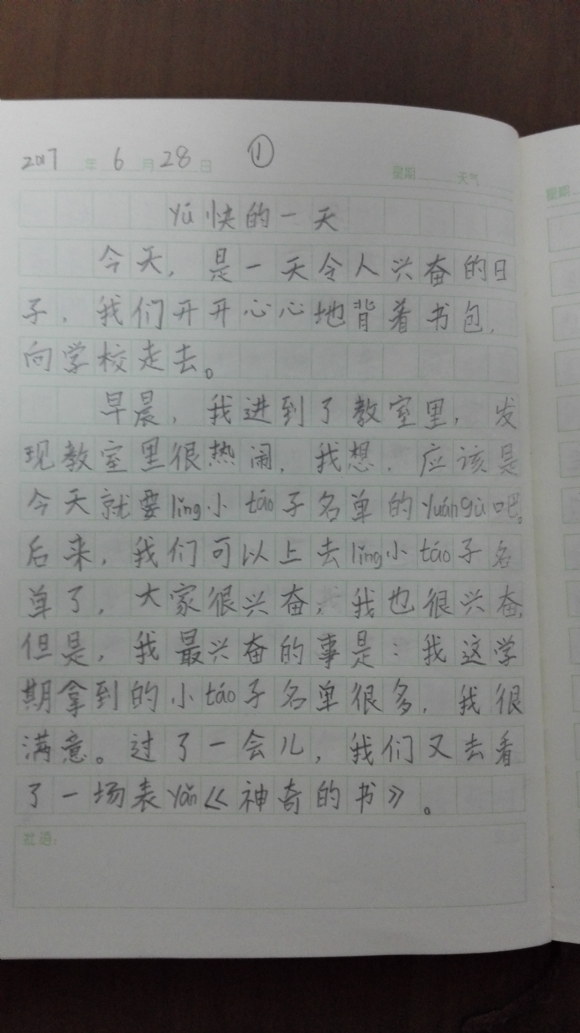 2017 年 6 月 28 日 ① 星期 天气
yú快的一天
今天，是一天令人兴奋的日
子，我们开开心心地背着书包，
向学校走去。
早晨，我进到了教室里，发
现教室里很热闹，我想，应该是
今天就要lǐng小táo子名单的yuángù吧。
后来，我们可以上去lǐng小táo子名
单了，大家很兴奋，我也很兴奋，
但是，我最兴奋的事是：我这学
期拿到的小táo子名单很多，我很
满意。过了一会儿，我们又去看
了一场表yǎn《神奇的书》。
批语：
星期